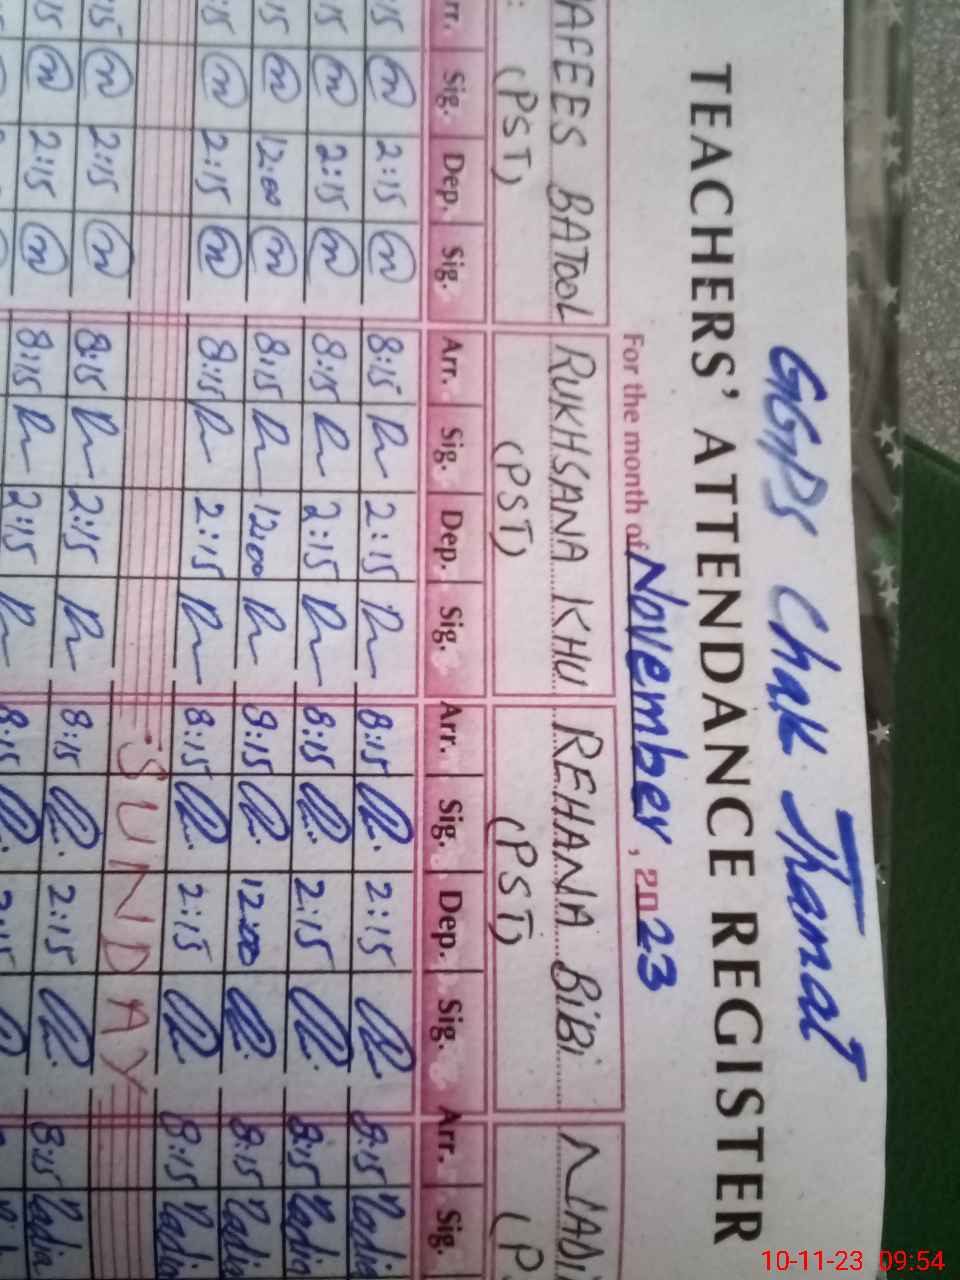 GGPS Chak Thamat
TEACHERS' ATTENDANCE REGISTER
For the month of November, 2023
AFEES BATOOL RUKHSANA KHU REHANA BIBI NADI
(PST) (PST) (PST) (P
rr. Sig. Dep. Sig. Arr. Sig. Dep. Sig. Arr. Sig. Dep. Sig. Arr. Sig.
:15 2:15 8:15 2:15 8:15 2:15 8:15 Nadia
:15 2:15 8:15 2:15 8:15 2:15 8:15 Nadia
:15 12:00 8:15 12:00 8:15 12:00 8:15 Nadia
:15 2:15 8:15 2:15 8:15 2:15 8:15 Nadia
SUNDAY
:15 2:15 8:15 2:15 8:15 2:15 8:15 Nadia
2:15 8:15 2:15 8:15 2:15
10-11-23 09:54